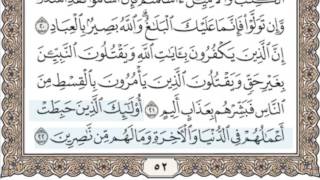 وَّإِن تَوَلَّوْا۟ فَإِنَّمَا عَلَيْكَ ٱلْبَلَـٰغُ وَٱللَّهُ بَصِيرٌۢ بِٱلْعِبَادِ ٢٠
إِنَّ ٱلَّذِينَ يَكْفُرُونَ بِـَٔايَـٰتِ ٱللَّهِ وَيَقْتُلُونَ ٱلنَّبِيِّـۧنَ
بِغَيْرِ حَقٍّ وَيَقْتُلُونَ ٱلَّذِينَ يَأْمُرُونَ بِٱلْقِسْطِ مِنَ
ٱلنَّاسِ فَبَشِّرْهُم بِعَذَابٍ أَلِيمٍ ٢١ أُو۟لَـٰٓئِكَ ٱلَّذِينَ حَبِطَتْ
أَعْمَـٰلُهُمْ فِى ٱلدُّنْيَا وَٱلْـَٔاخِرَةِ وَمَا لَهُم مِّن نَّـٰصِرِينَ ٢٢
٥٢